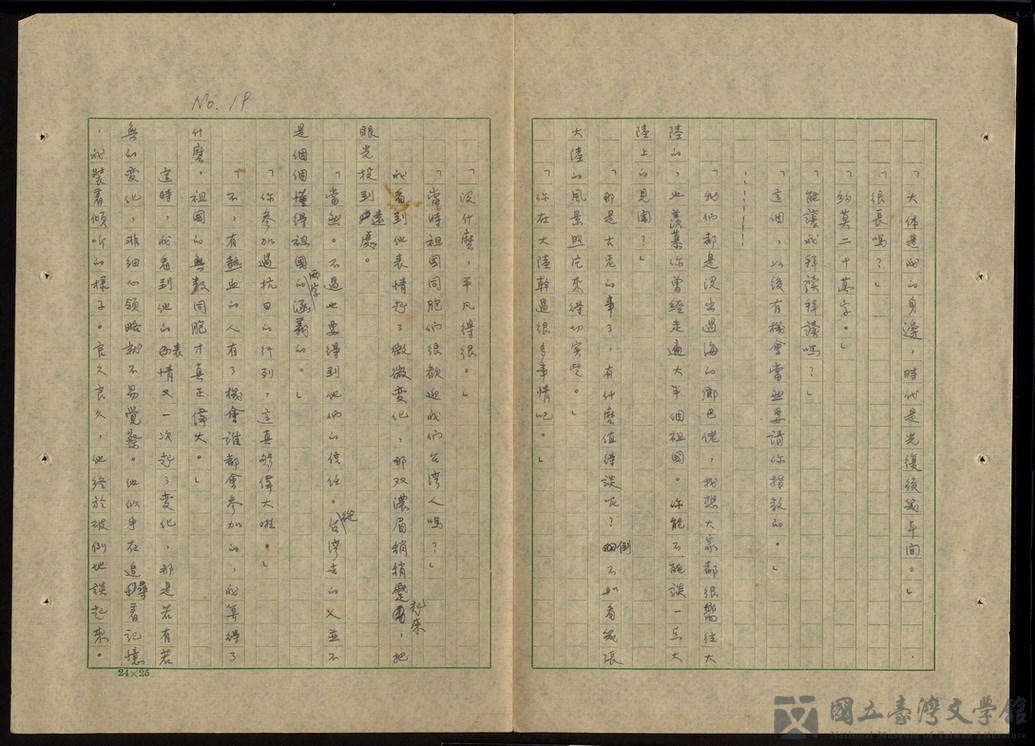 No. 19
「大体是我的身邊，時代是光復後幾年間。」
「很長嗎？」
「約莫二十萬字。」
「能讓我拜讀拜讀嗎？」
「這個，以後有機會當然要請你指教的。」
「…………
「我們都是沒出過海的鄉巴佬，我想大家都很嚮往大
陸的，也羨慕你曾經走遍大半個祖国。你能不能談一点大
陸上的見聞？」
「那是古老的事了，有什麼值得談呢？倒不如看幾張
大陸的風景照片來得切实些。」
「你在大陸幹過很多事情吧。」
「沒什麼，平凡得很。」
「當時祖国同胞們很歡迎我們台湾人嗎？」
我看到他表情起了微微变化，那双濃眉稍稍起來，把
眼光投到遠處。
「當然。不過也要得到他們的信任。從台湾去的人並不
是個個懂得祖國兩字的涵義的。」
「你参加過抗日的行列，這真夠偉大啦。」
「不，有熱血的人有了機會誰都會参加的，我算得了
什麼，祖国的無數同胞才真正偉大。」
這時，我看到他的表情又一次起了变化，那是若有若
無的变化，非細心領略就不易覺察。他似乎在追尋着記憶
，我裝着傾听的樣子。良久良久，他終於破例地談起來。
24×25
國立臺灣文學館
National Museum of Taiwan Literature